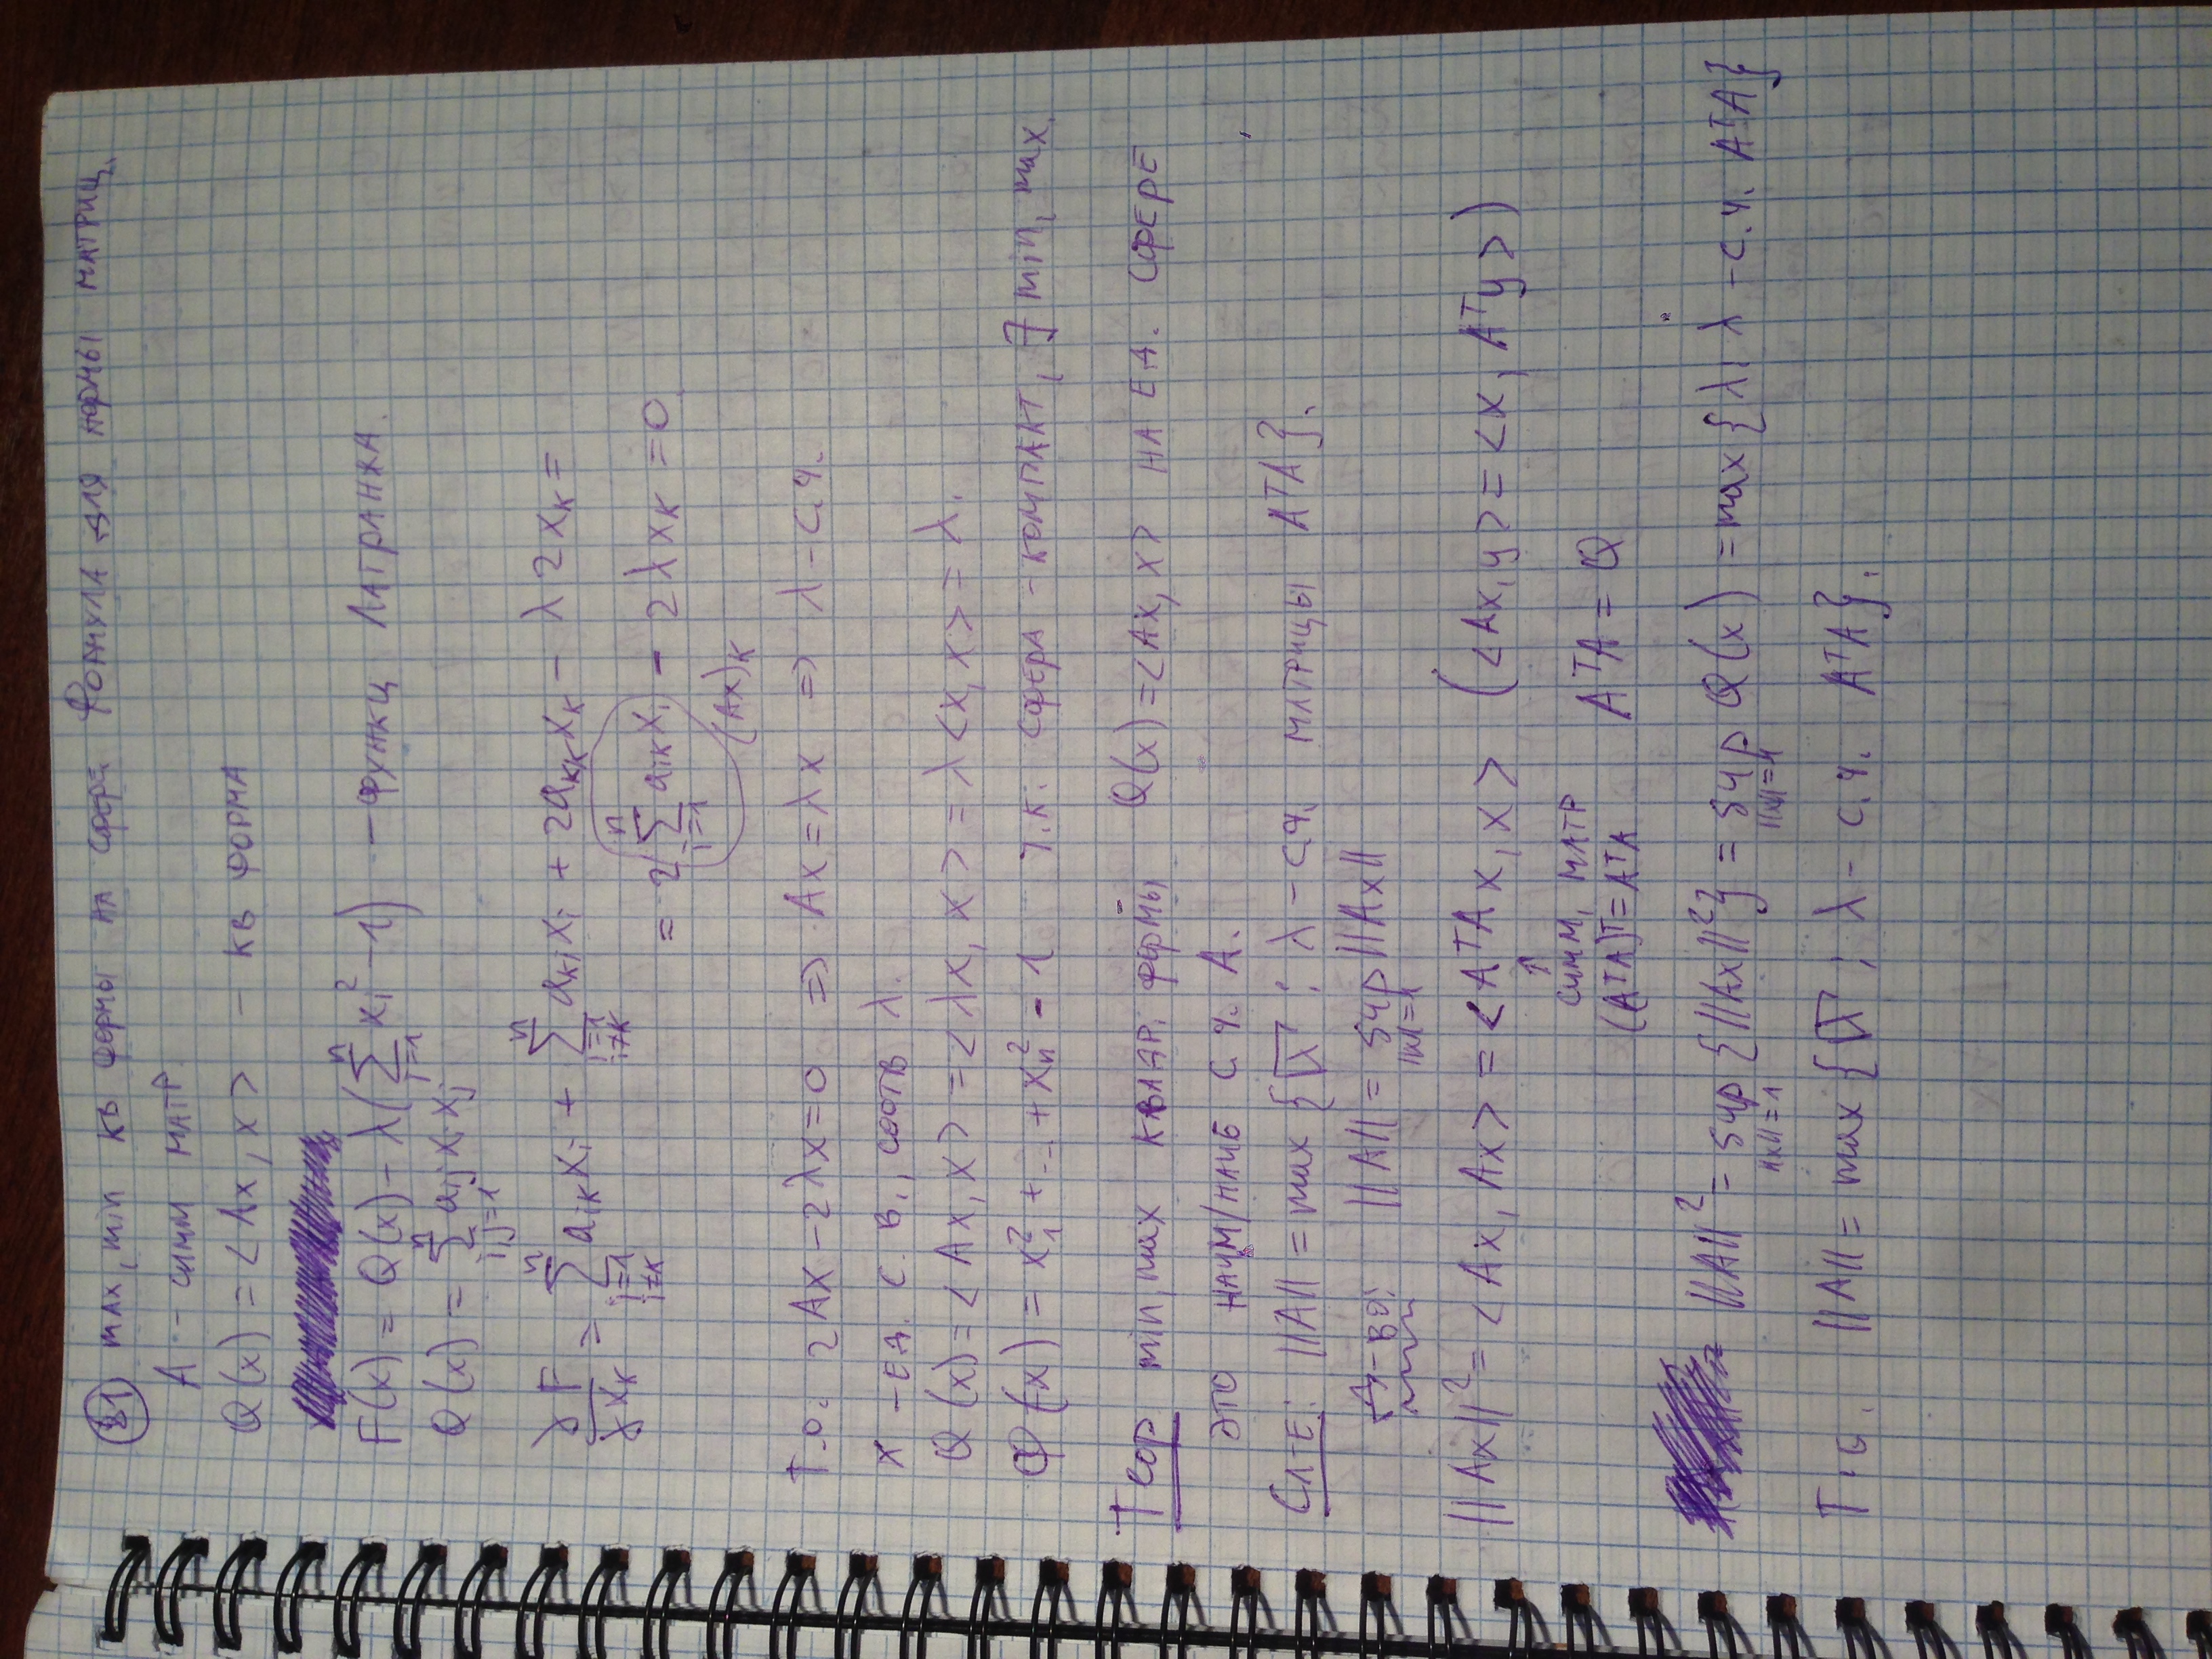 21 max, min кв формы на сфере. Формула для нормы матриц.
A - симм матр.
Q(x) = <Ax, x> - кв форма
F(x) = Q(x) - λ(∑_{i=1}^{n} x_i^2 - 1) - функц Лагранжа.
Q(x) = ∑_{i,j=1}^{n} a_{ij} x_i x_j
∂F/∂x_k = ∑_{i=1, i≠k}^{n} a_{ik} x_i + ∑_{i=1, i≠k}^{n} a_{ki} x_i + 2a_{kk} x_k - λ 2x_k =
= 2 ∑_{i=1}^{n} a_{ik} x_i - 2λx_k = 0
(Ax)_k
Т.о. 2Ax - 2λx = 0 => Ax = λx => λ - с.ч.
x - ед. с. в., соотв λ.
Q(x) = <Ax, x> = <λx, x> = λ<x, x> = λ.
φ(x) = x_1^2 + ... + x_n^2 - 1 т.к. сфера - компакт, ∃ min, max.
Теор min, max квадр. формы Q(x) = <Ax, x> на ед. сфере
это наим/наиб с. ч. A.
Сл-е: ||A|| = max {√λ ; λ - с.ч. матрицы A^T A}.
Д-во: ||A|| = sup_{||x||=1} ||Ax||
||Ax||^2 = <Ax, Ax> = <A^T A x, x> (<Ax, y> = <x, A^T y>)
↑
симм. матр
(A^T A)^T = A^T A A^T A = Q
||A||^2 = sup_{||x||=1} {||Ax||^2} = sup_{||x||=1} Q(x) = max {λ: λ - с.ч. A^T A}
Т.о. ||A|| = max {√λ ; λ - с.ч. A^T A}.